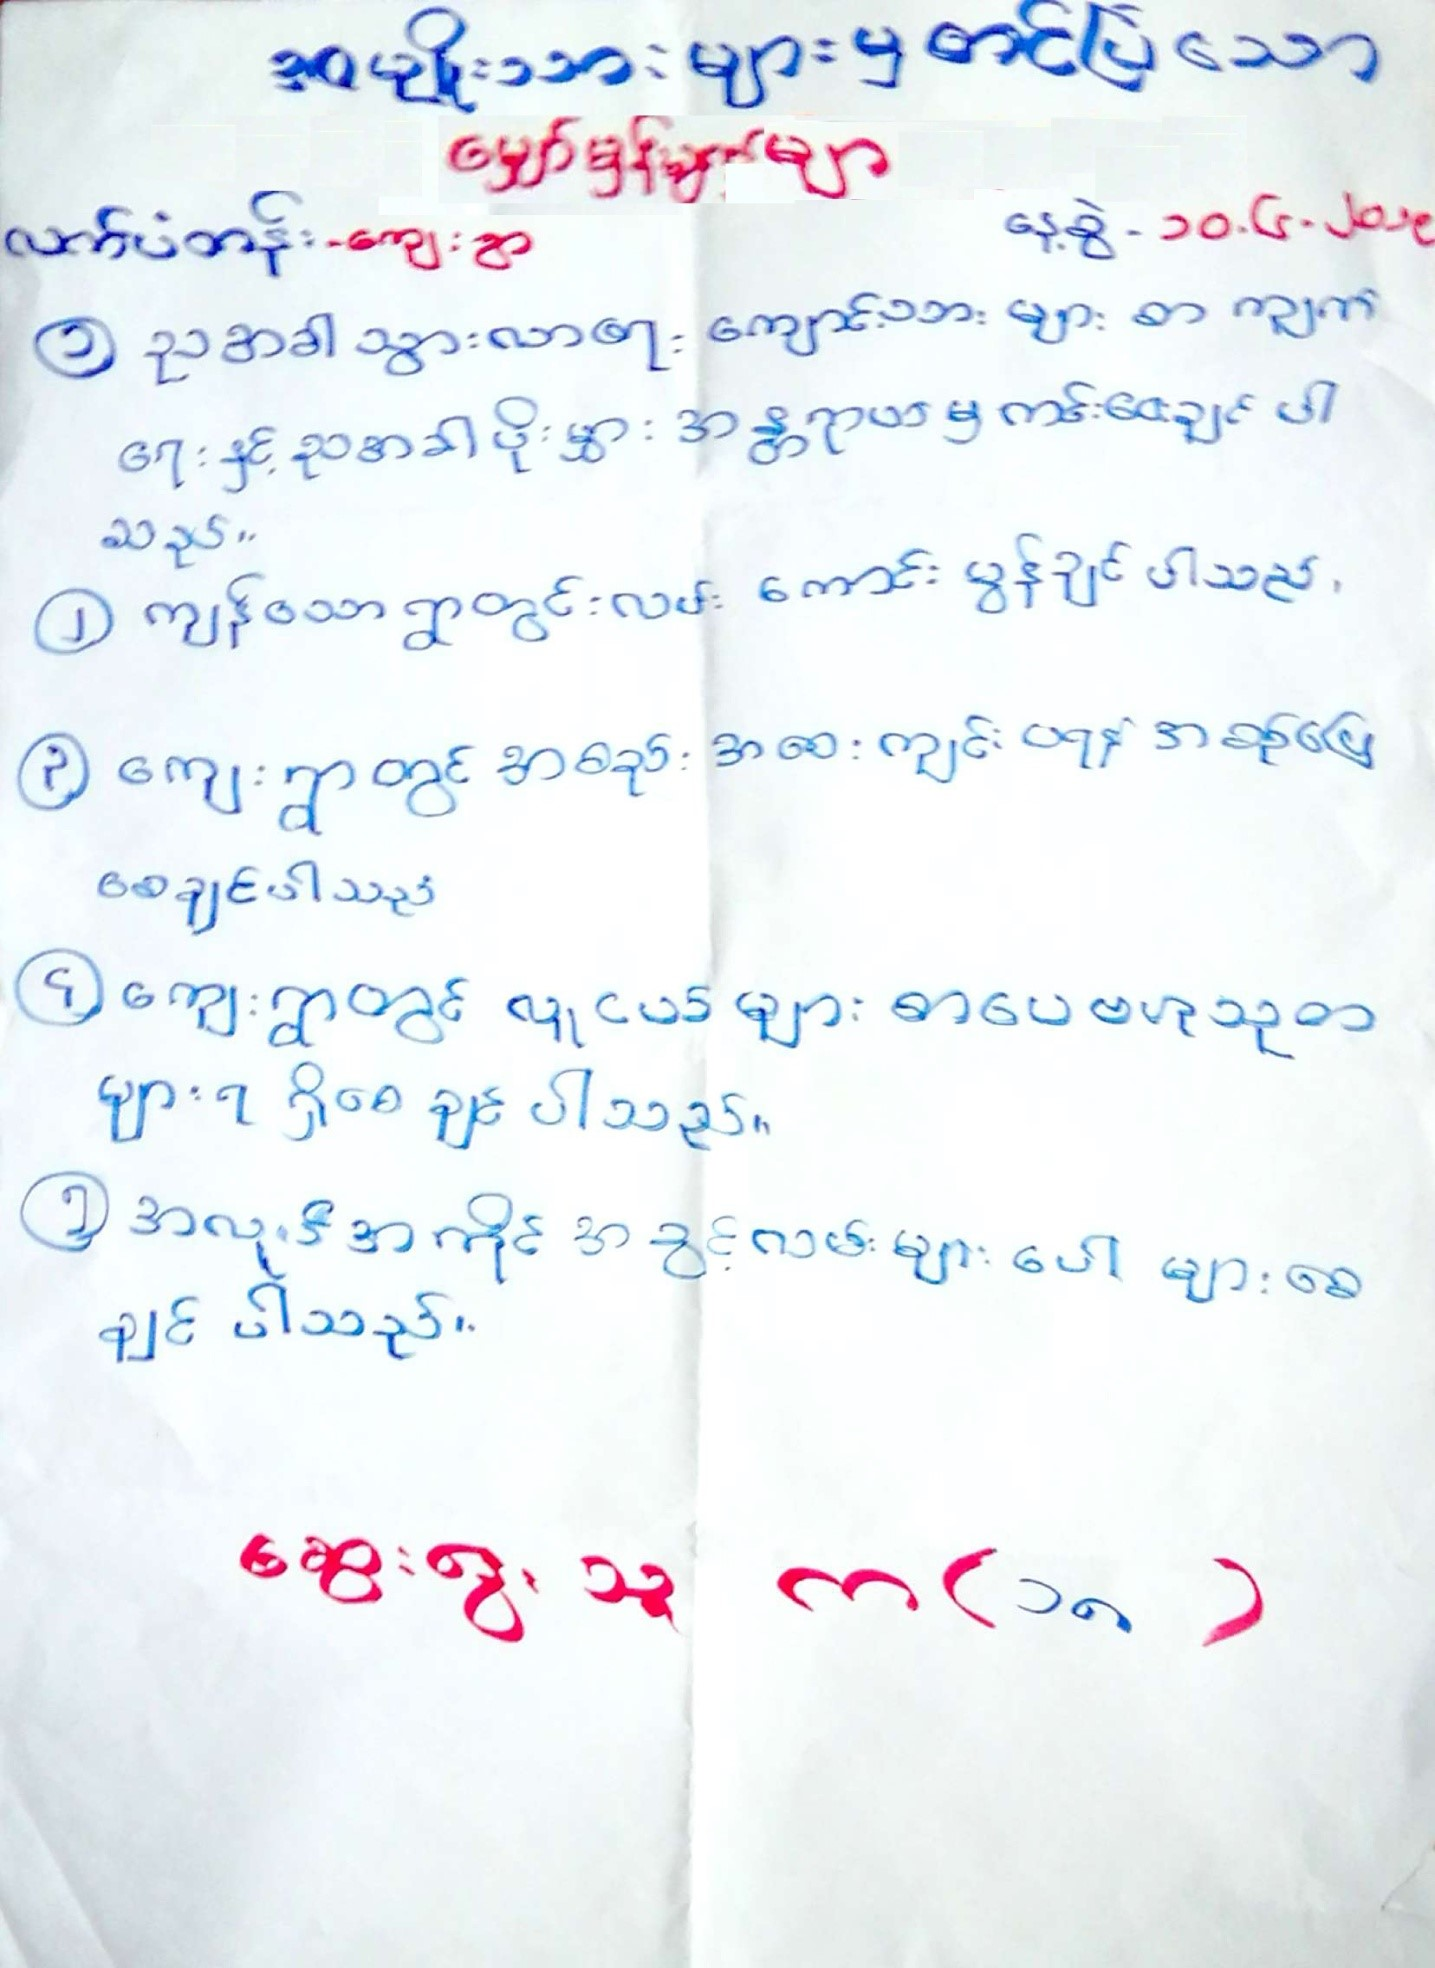 အမျိုးသားများမှ တင်ပြသော
မျှော်မှန်းချက်များ
လက်ပံတန်း-ကျေးရွာ
နေ့စွဲ - ၁၀.၄.၂၀၁၉
၁ ညအခါ သွားလာရေး ကျောင်းသား များ စာ ကျက်
ရေး နှင့် ညအခါ ပိုးမွှား အန္တရာယ်မှ ကင်းဝေးချင် ပါ
သည်။
၂ ကျန်သော ရွာတွင်းလမ်း ကောင်း မွန်ချင် ပါသည်။
၃ ကျေးရွာတွင် အစည်း အဝေး ကျင်း ပရန် အဆင်ပြေ
စေချင်ပါသည်
၄ ကျေးရွာတွင် လူငယ် များ စာပေဗဟုသုတ
များ ရ ရှိစေ ချင် ပါသည်။
၅ အလုပ်အကိုင် အခွင့်လမ်းများ ပေါ များစေ
ချင် ပါသည်။
ဆွေးနွေးသူ ကာ (၁၈ )